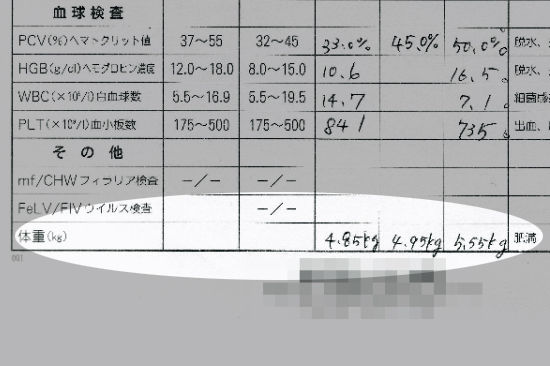 血球検査
PCV(%)ヘマトクリット値 37〜55 32〜45 33.0% 45.0% 50.0% 脱水、
HGB(g/dl)ヘモグロビン濃度 12.0〜18.0 8.0〜15.0 10.6 16.5 脱水、
WBC(×10³/l)白血球数 5.5〜16.9 5.5〜19.5 14.7 7.1 細菌感
PLT(×10⁹/l)血小板数 175〜500 175〜500 841 735 出血、
その他
mf/CHWフィラリア検査 −/− −/−
FeLV/FIVウイルス検査 −/−
体重(kg) 4.85kg 4.95kg 5.55kg 肥満